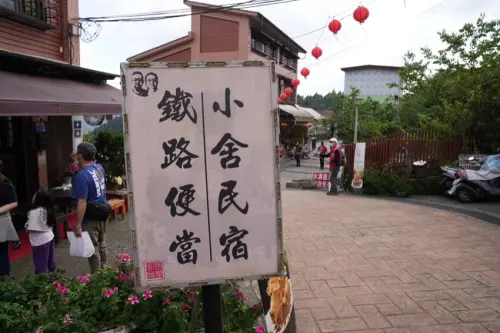 小舍民宿
鐵路便當